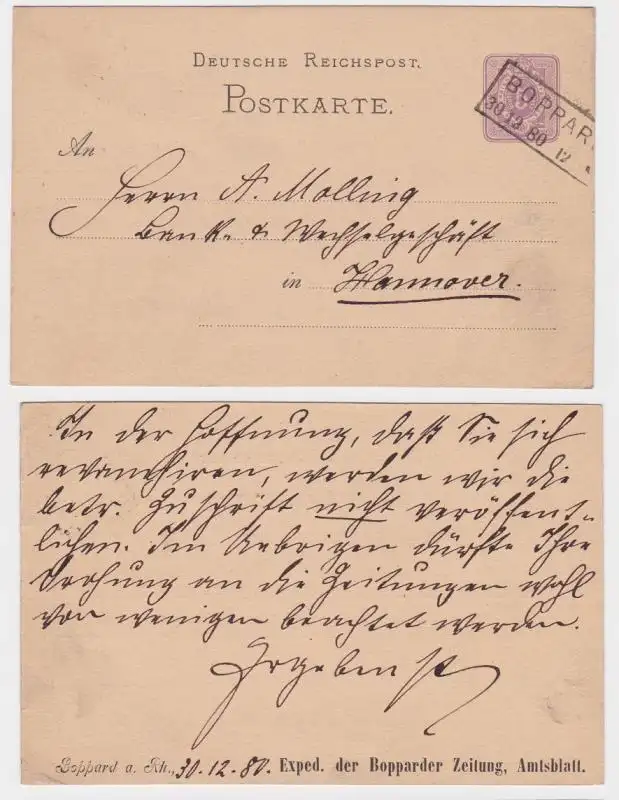 DEUTSCHE REICHSPOST.
POSTKARTE.
BOPPAR
30 12 80 12
An
Herrn A. Molling
Bank- & Wechselgeschäft
in Hannover.
In der Hoffnung, daß Sie sich
revanchiren, werden wir die
betr. Zuschrift nicht veröffent-
lichen. Im Uebrigen dürfte Ihre
Drohung an die Zeitungen wohl
von wenigen beachtet werden.
Ergebenst
Boppard a. Rh., 30.12.80. Exped. der Bopparder Zeitung, Amtsblatt.